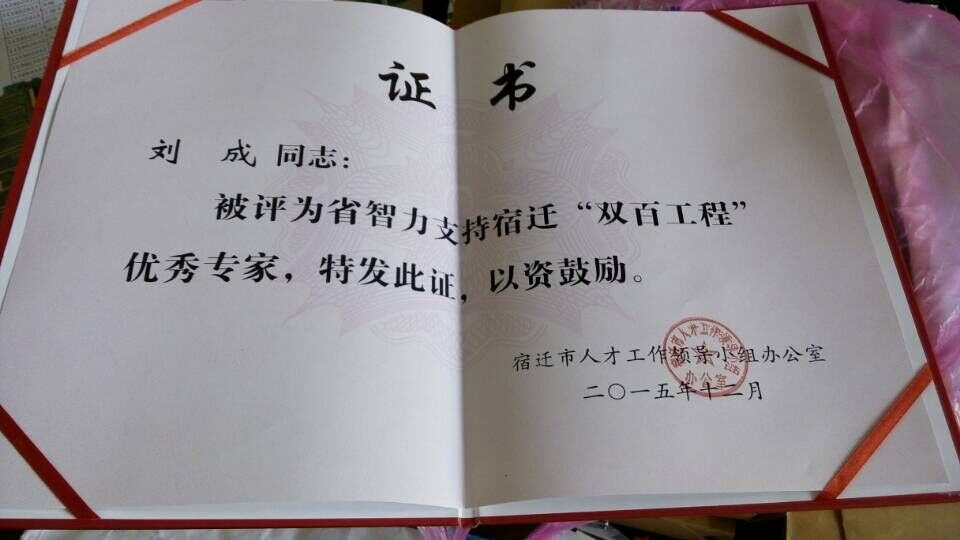 证书
刘成同志：
被评为省智力支持宿迁“双百工程”
优秀专家，特发此证，以资鼓励。
宿迁市人才工作领导小组办公室
二〇一五年十二月
办公室